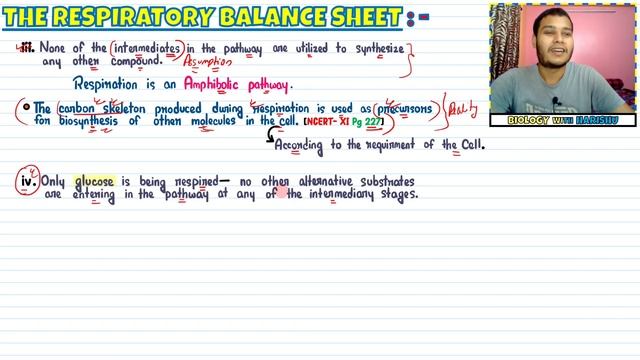 THE RESPIRATORY BALANCE SHEET :-
iii. None of the (intermediates) in the pathway are utilized to synthesize
any other compound. Assumption
Respiration is an Amphibolic pathway.
The carbon skeleton produced during respiration is used as (precursors)
for biosynthesis of other molecules in the cell. [NCERT- XI Pg 227] Reality
According to the requirment of the Cell.
iv. Only glucose is being respired— no other alternative substrates
are entering in the pathway at any of the intermediary stages.
BIOLOGY WITH HARISHU